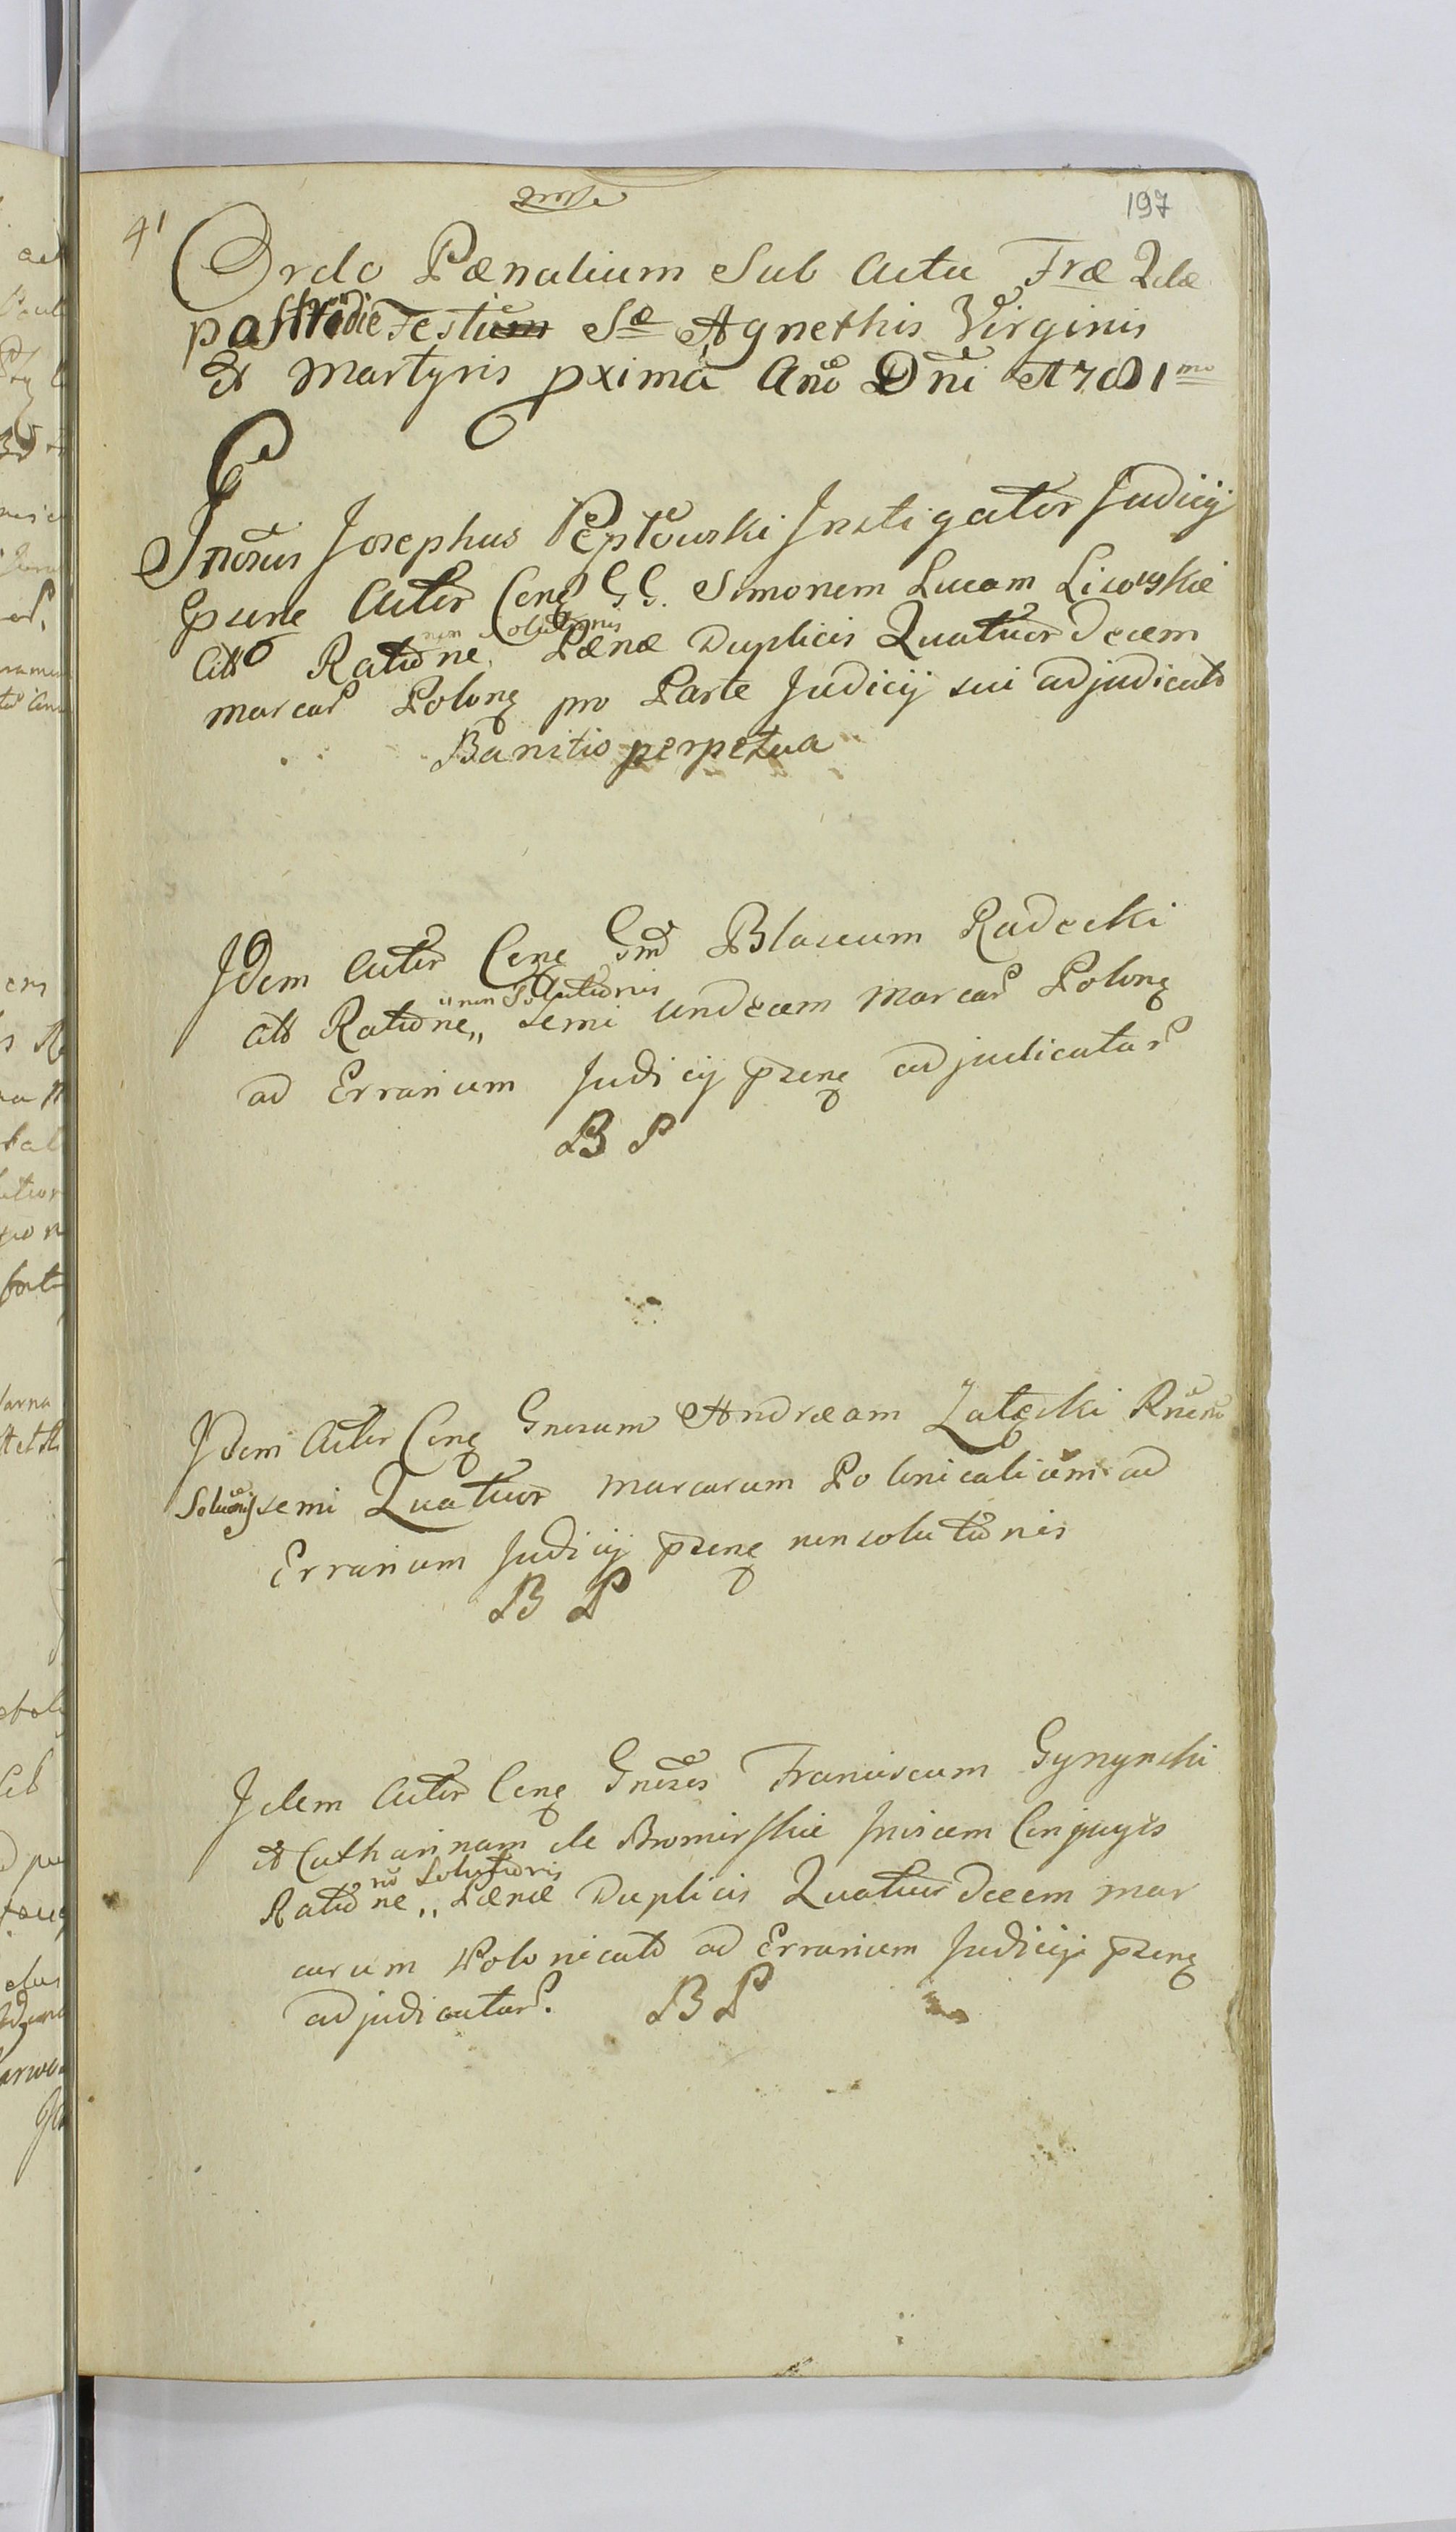 197
41
Ordo Pænalium Sub Actu Fræ 2dæ
postridie Festum Sæ Agnethis Virginis
Et Martyris pxima Ano Dni 1781mo
Gnosus Josephus Peptowski Instigator Judicij
psene Actor Cenq GG. Simonem Lucam Lisowskie
Citt Ratione non Solutionis Pænæ Duplicis Quatuor decem
marcar Polonq pro Parte Judicij sui adjudicato
Banitio perpetua
Idem Actor Cenq Gnd Blasium Radecki
Citt Ratione,, non Solutionis semi undecem marcar Polonq
ad Errarium Judicij psenq adjudicatar
B P
Idem Actor Cenq Gnosum Andræam Zatęski Rnem
Soluonis semi Quatuor marcarum Polonicalium ad
Errarium Judicij psenq non solutionis
B P
Idem Actor Cenq Gnosos Franciscum Gynynski
et Catharinam de Bromirskie Invicem Conjuges
Ratione,, no Solutionis Pænæ Duplicis Quatuor decem mar
carum Polonicato ad Errarium Judicij psenq
adjudicatar. B P